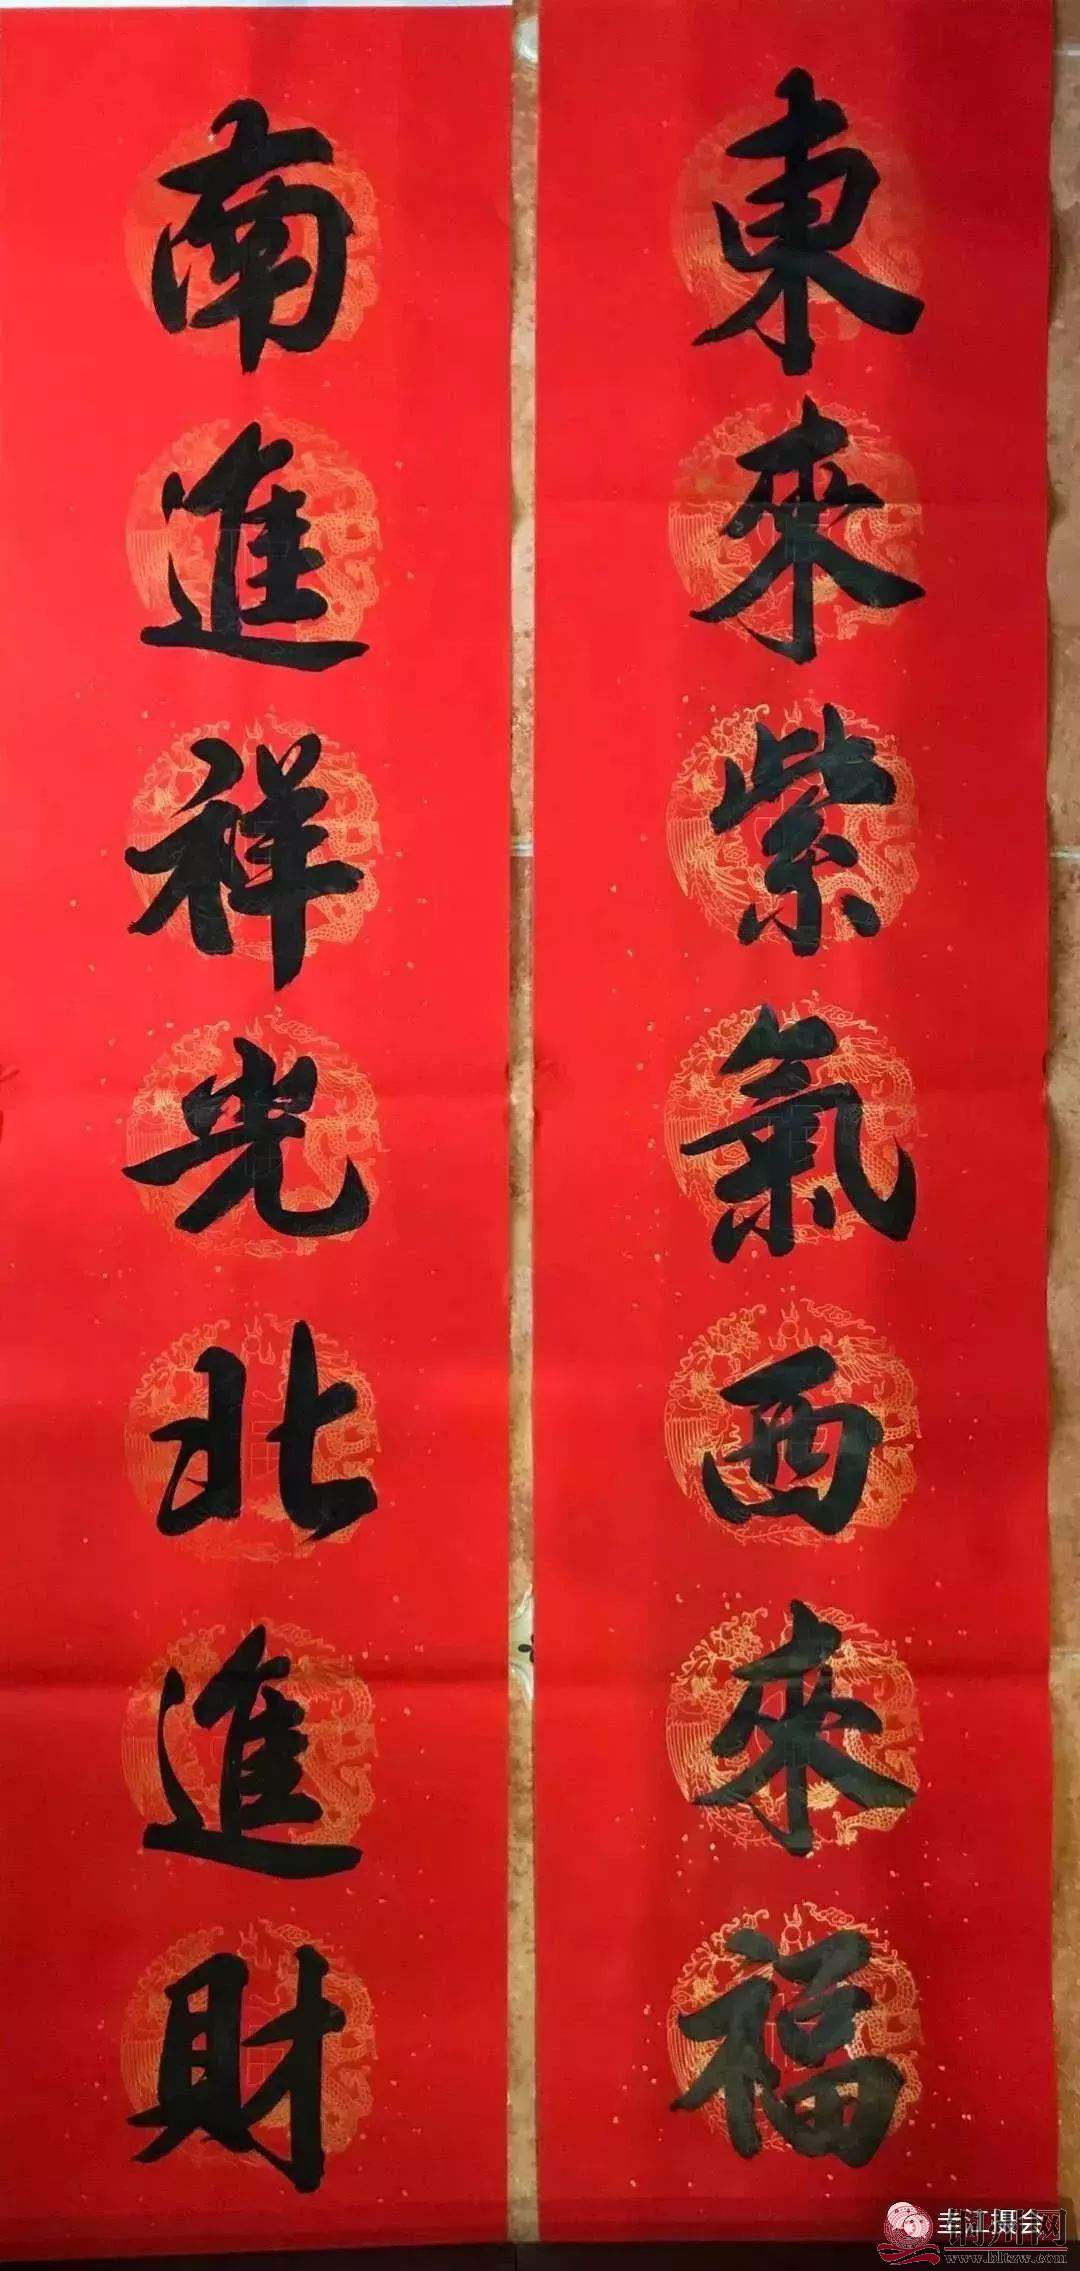 東來紫氣西來福
南進祥光北進財
www.bltzw.com